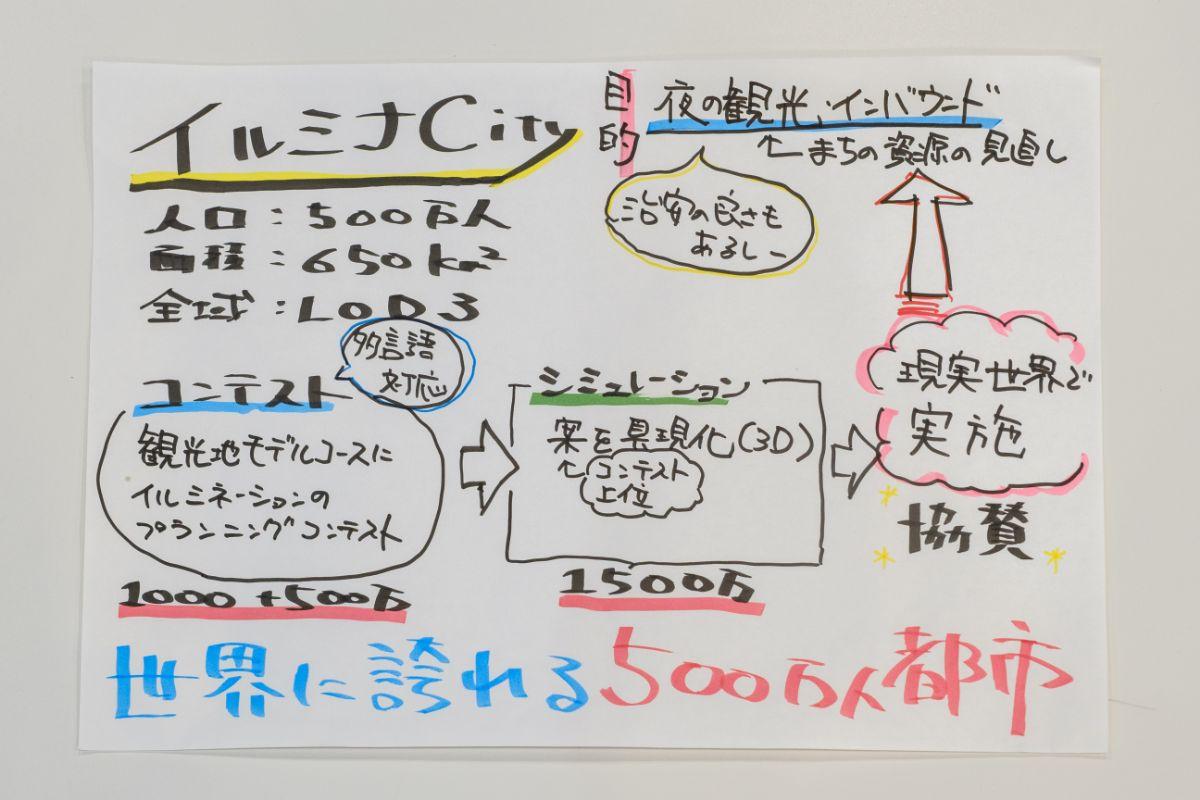 イルミナCity
人口：500万人
面積：650km²
全域：LOD3
目的
夜の観光、インバウンド
←まちの資源の見直し
治安の良さも
あるしー
コンテスト
多言語
対応
観光地モデルコースに
イルミネーションの
プランニングコンテスト
1000+500万
シミュレーション
案を具現化(3D)
←コンテスト
上位
1500万
現実世界で
実施
協賛
世界に誇れる500万人都市